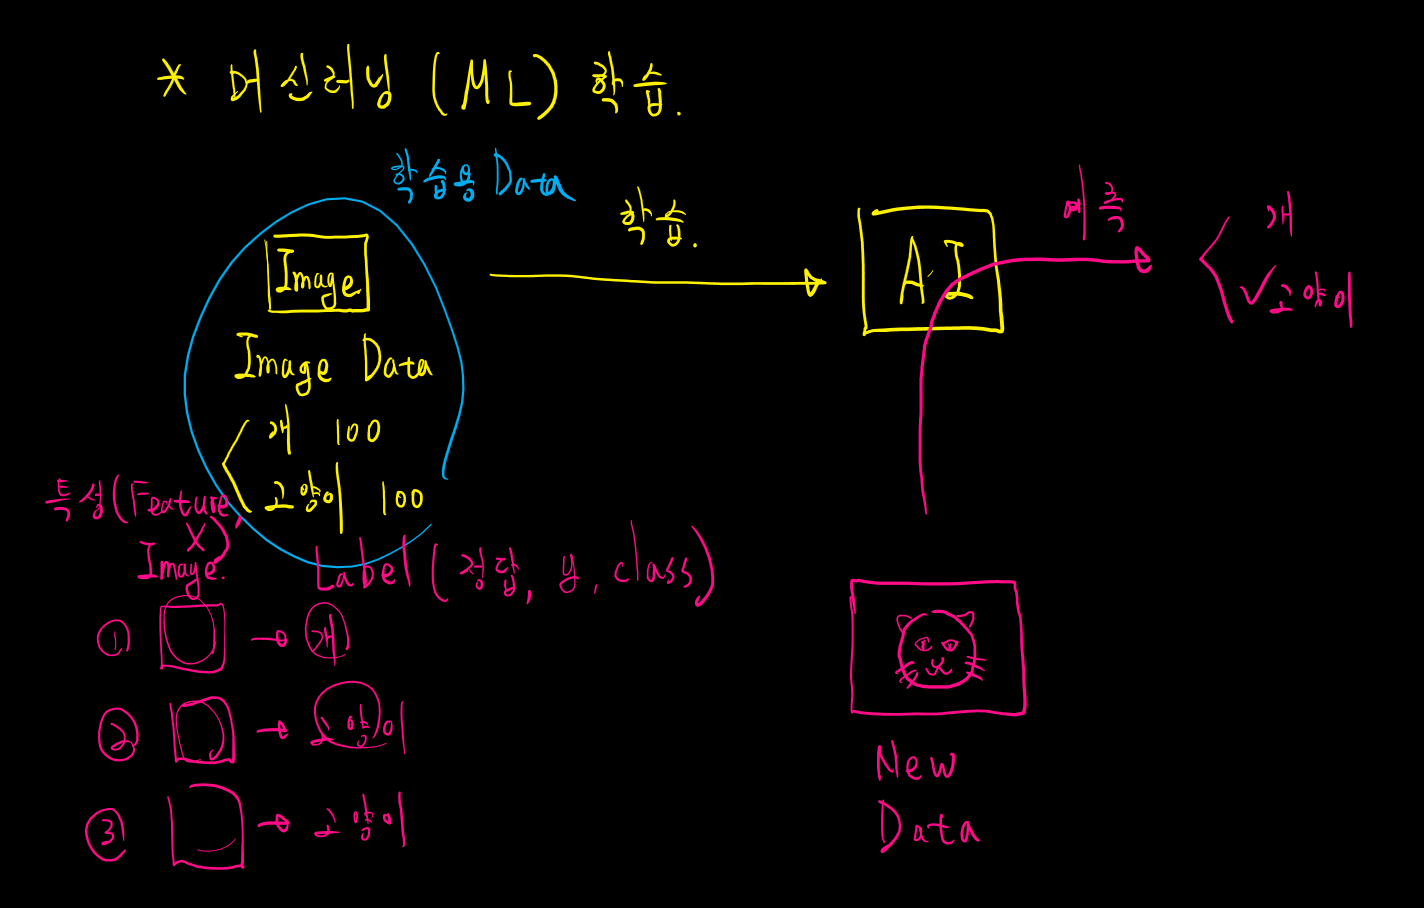 * 머신러닝 (ML) 학습.
학습용 Data
Image
Image Data
개 100
고양이 100
학습.
AI
예측
개
✓고양이
특성(Feature,
X)
Image.
Label (정답, y, class)
① → 개
② → 고양이
③ → 고양이
New
Data